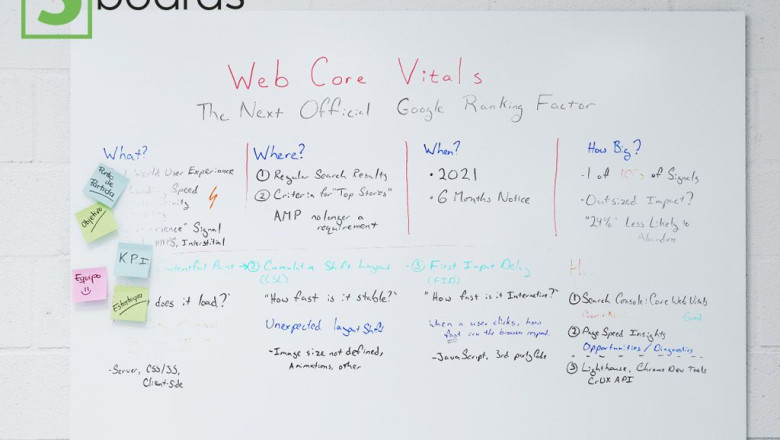 boards
Web Core Vitals
The Next Official Google Ranking Factor
What?
World User Experience
Speed
Signal
Interstitial
Punto de Partida
Objetivo
KPI
Equipo
Estrategia
Paint →
does it load?"
-Server, CSS/JS,
Client-side
Where?
① Regular Search Results
② Criteria for "Top Stories"
AMP no longer a
requirement
② Cumulative Shift Layout
(CSL)
"How fast is it stable?"
Unexpected layout Shift
-Image size not defined,
Animations, other
When?
• 2021
• 6 Months Notice
③ First Input Delay
(FID)
"How fast is it Interactive?"
when a user clicks, how
fast can the browser respond.
-JavaScript, 3rd party Code
How Big?
-1 of 100s of Signals
-Outsized Impact?
"24%" Less Likely to
Abandon
H
① Search Console: Core Web Vitals
Good
② Page Speed Insights
Opportunities / Diagnostics
③ Lighthouse, Chrome Dev Tools
CrUX API